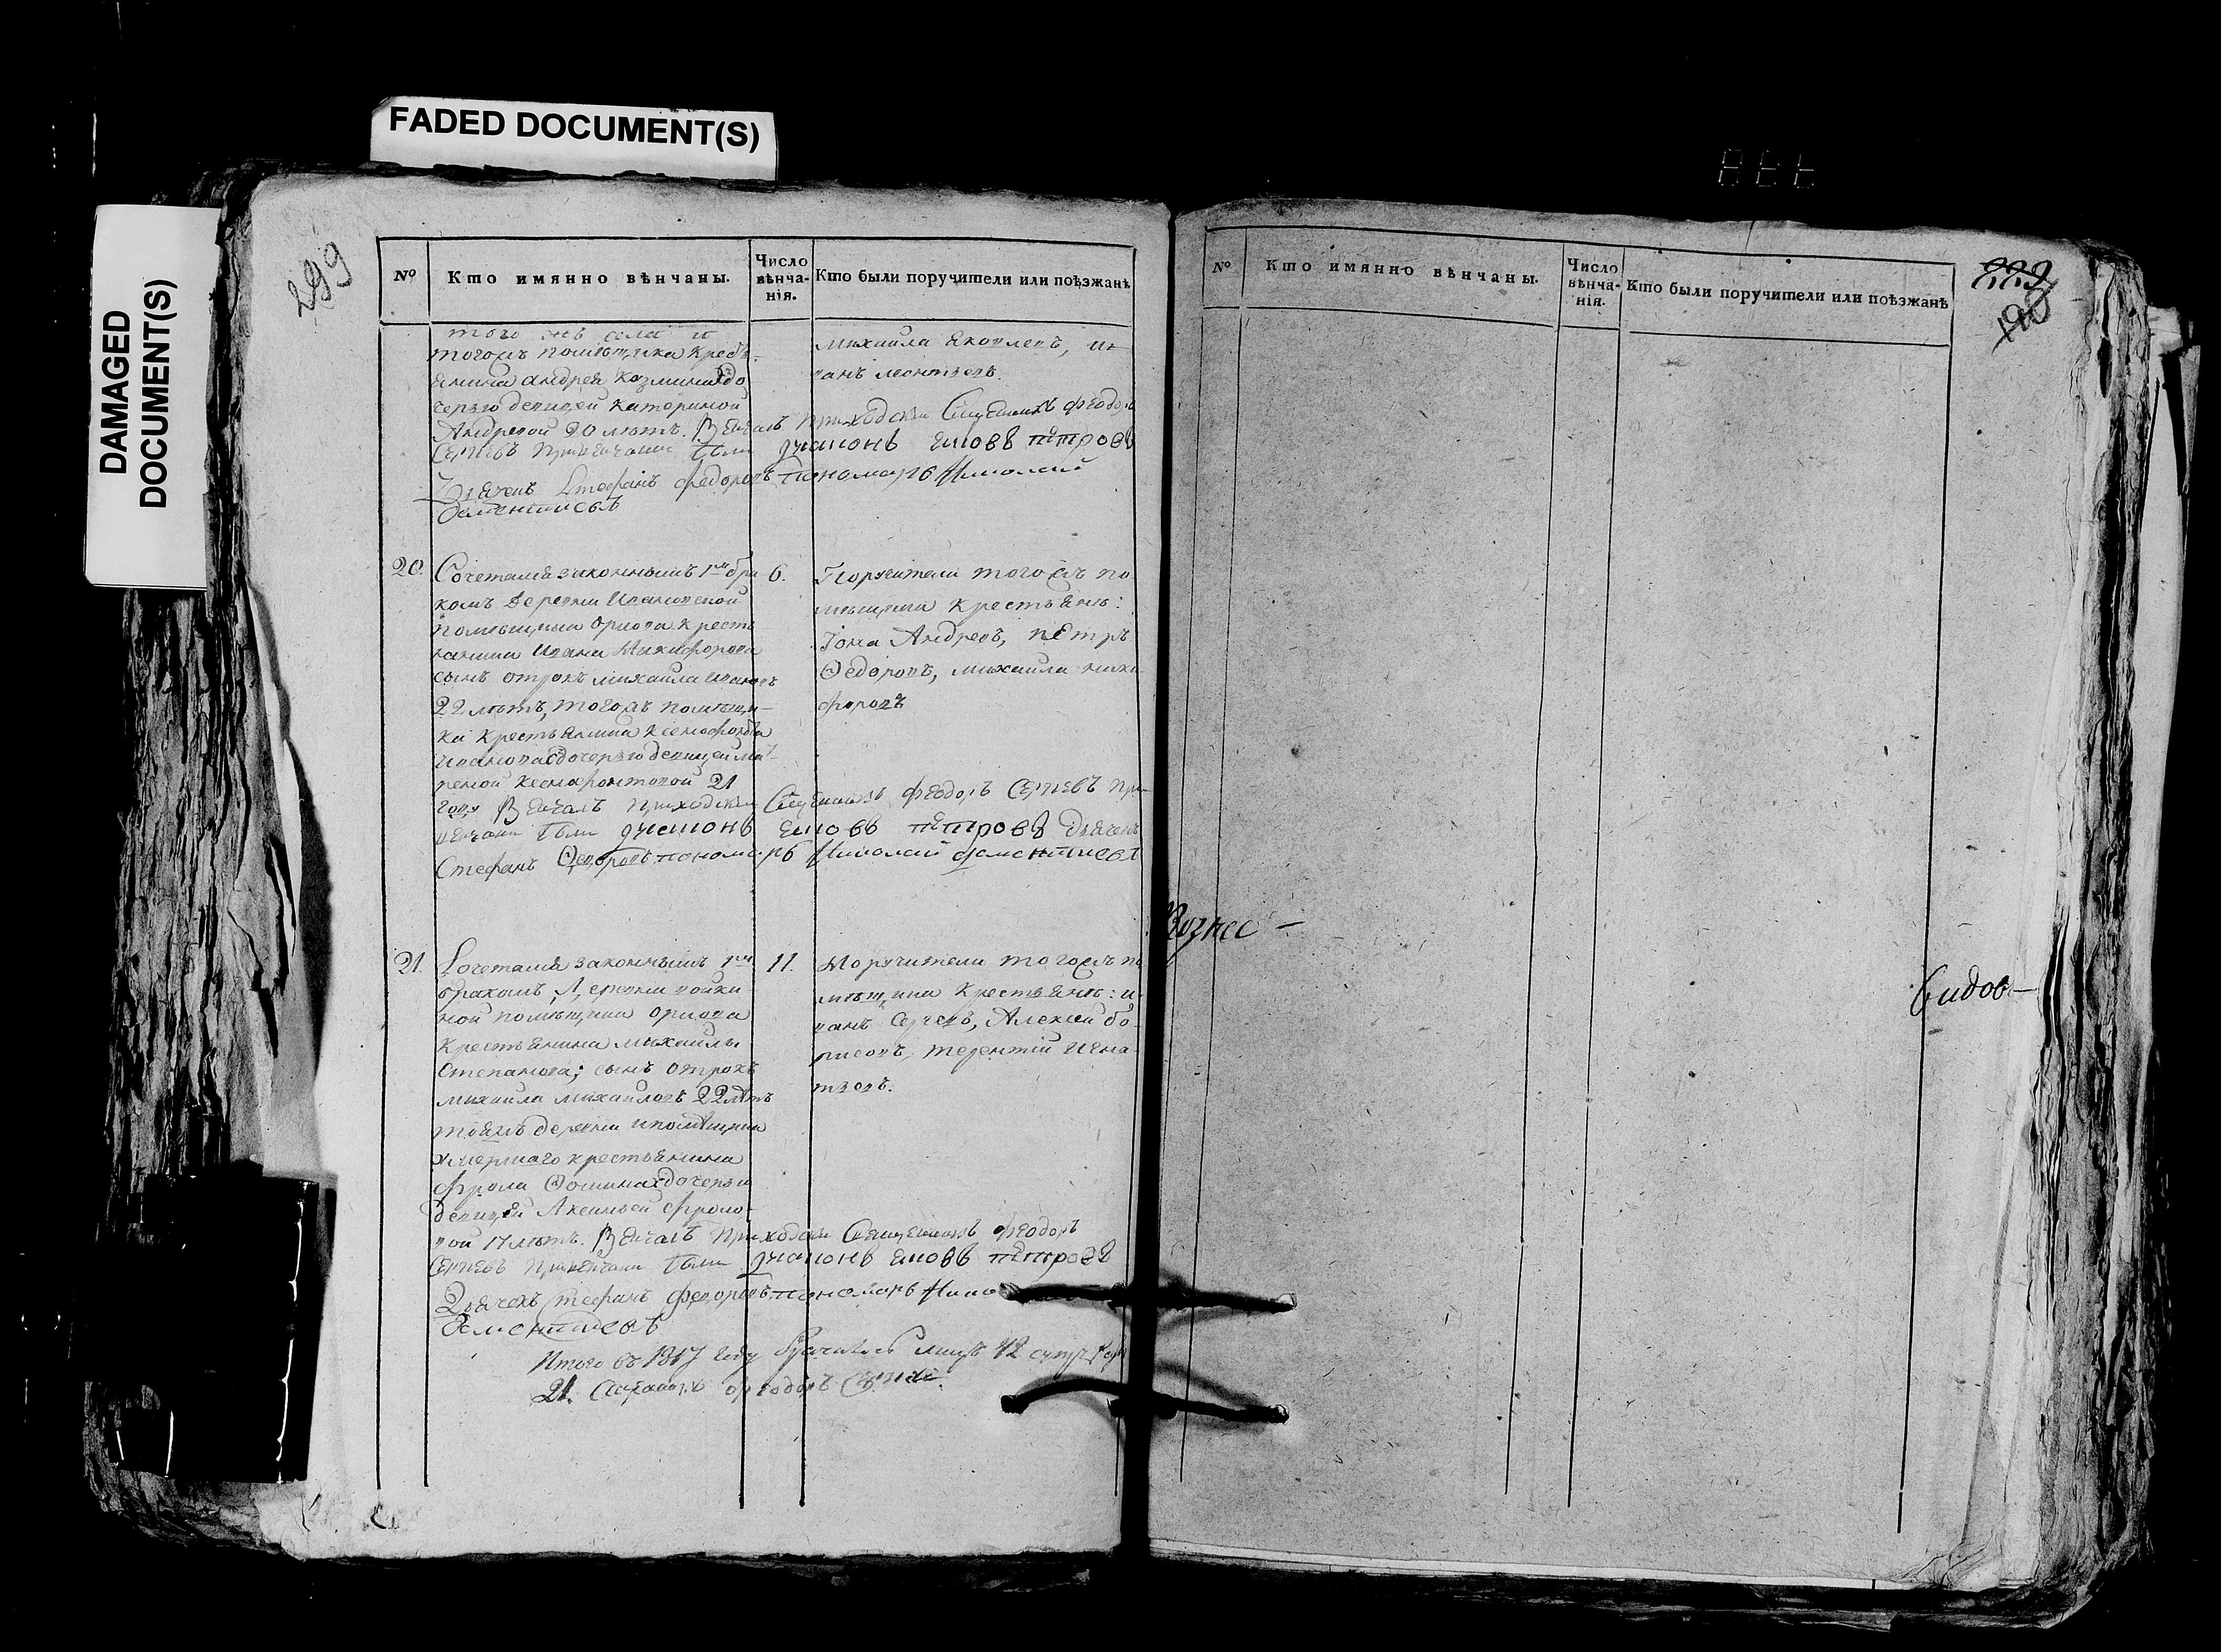 FADED DOCUMENT(S)
DAMAGED
DOCUMENT(S)
299
№
Кто имянно вѣнчаны.
Число
вѣнча-
нія.
Кто были поручители или поѣзжанѣ
того жъ села и
тогожъ помѣщика кресть-
янина андрея козмина до
черью девицей катериной
Андревой 20 лѣтъ. Венчалъ приходский Священникъ Феодоръ
Сергеевъ при венчании были диаконъ Иовъ петровъ
Дьячекъ Стефанъ федоровъ пономарь Николай
Дементиевъ
Михайла Яковлевъ, и-
ванъ леонтьевъ.
20.
Сочетался законнымъ 1м бра-
комъ деревни Ивановской
помѣщика орлова кресть
янина Ивана Никифорова
сынъ отрокъ михайла ивановъ
22 лѣтъ, тогожъ помѣщи-
ка крестьянина ксенофонта
иванова дочерью девицей ма-
реной ксенофонтовой 21
году Венчалъ приходский Священникъ Феодоръ Сергеевъ при
венчани были диаконъ Иовъ петровъ дьячекъ
Стефанъ Ѳедоровъ пономарь Николай Дементиевъ
6.
Поручители тогожъ по
мѣщика крестьяне:
Iона Андреевъ, петръ
Ѳедоровъ, михайла ники
форовъ
21.
Сочетался законнымъ 1м
бракомъ, деревни войки
ной помѣщика орлова
крестьянина михайлы
степанова; сынъ отрокъ
михайла михайловъ 22 лѣтъ
тояжъ деревни и помѣщика
умершаго крестьянина
фрола Ѳомина дочерью
девицей Аксиньей Фроло-
вой 17 лѣтъ. Венчалъ приходский Священникъ Феодоръ
Сергеевъ при венчани были диаконъ Иовъ петровъ
Дьячекъ стефанъ федоровъ пономарь Нико
Дементиевъ
11.
Поручители тогожъ по
мѣщика крестьяне: и
ванъ Сергевъ, Алексей бо-
рисовъ, терентiй Игна-
тьевъ.
Итого въ 1817 году лицъ 42
21. Священникъ Феодоръ Сергеевъ
№
Кто имянно вѣнчаны.
Число
вѣнча-
нія.
Кто были поручители или поѣзжанѣ
223
Вознес-
Сидов-